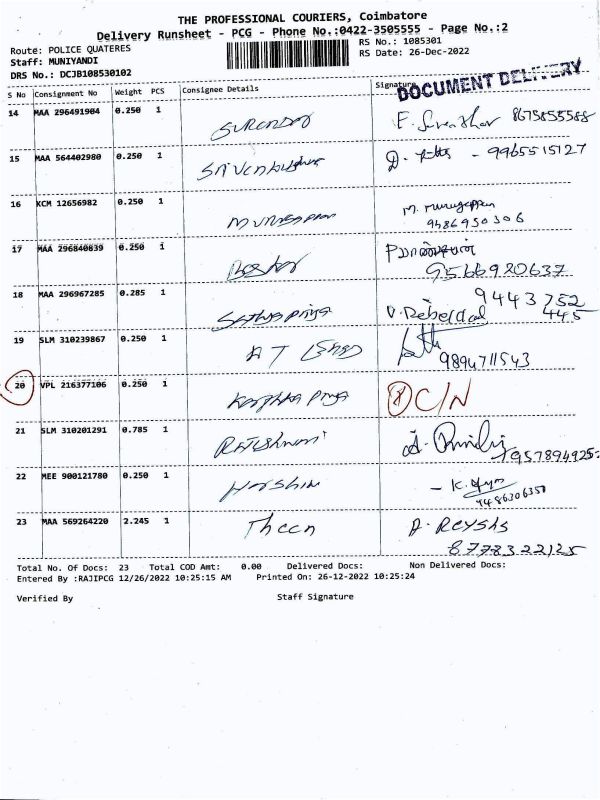 THE PROFESSIONAL COURIERS, Coimbatore
Delivery Runsheet - PCG - Phone No.:0422-3505555 - Page No.:2
Route: POLICE QUATERES
RS No.: 1085301
Staff: MUNIYANDI
RS Date: 26-Dec-2022
DRS No.: DCJB108530102
DOCUMENT DELIVERY
S No Consignment No Weight PCS Consignee Details Signature
14 MAA 296491904 0.250 1 Surendar 8675855588
15 MAA 564402980 0.250 1 D. - 9965515127
16 KCM 12656982 0.250 1 Murugappan M. Murugappan
9486950306
17 MAA 296840839 0.250 1
9566920637
18 MAA 296967285 0.285 1 Sathya Priya 9443752
445
19 SLM 310239867 0.250 1 A T
9894711543
20 VPL 216377106 0.250 1 Karthika Priya C/N
21 SLM 310201291 0.785 1 Rajeshwari
957894925
22 MEE 900121780 0.250 1 Harshini - K.
9486306351
23 MAA 569264220 2.245 1 Theen A.
8778322125
Total No. Of Docs: 23 Total COD Amt: 0.00 Delivered Docs: Non Delivered Docs:
Entered By :RAJIPCG 12/26/2022 10:25:15 AM Printed On: 26-12-2022 10:25:24
Verified By Staff Signature